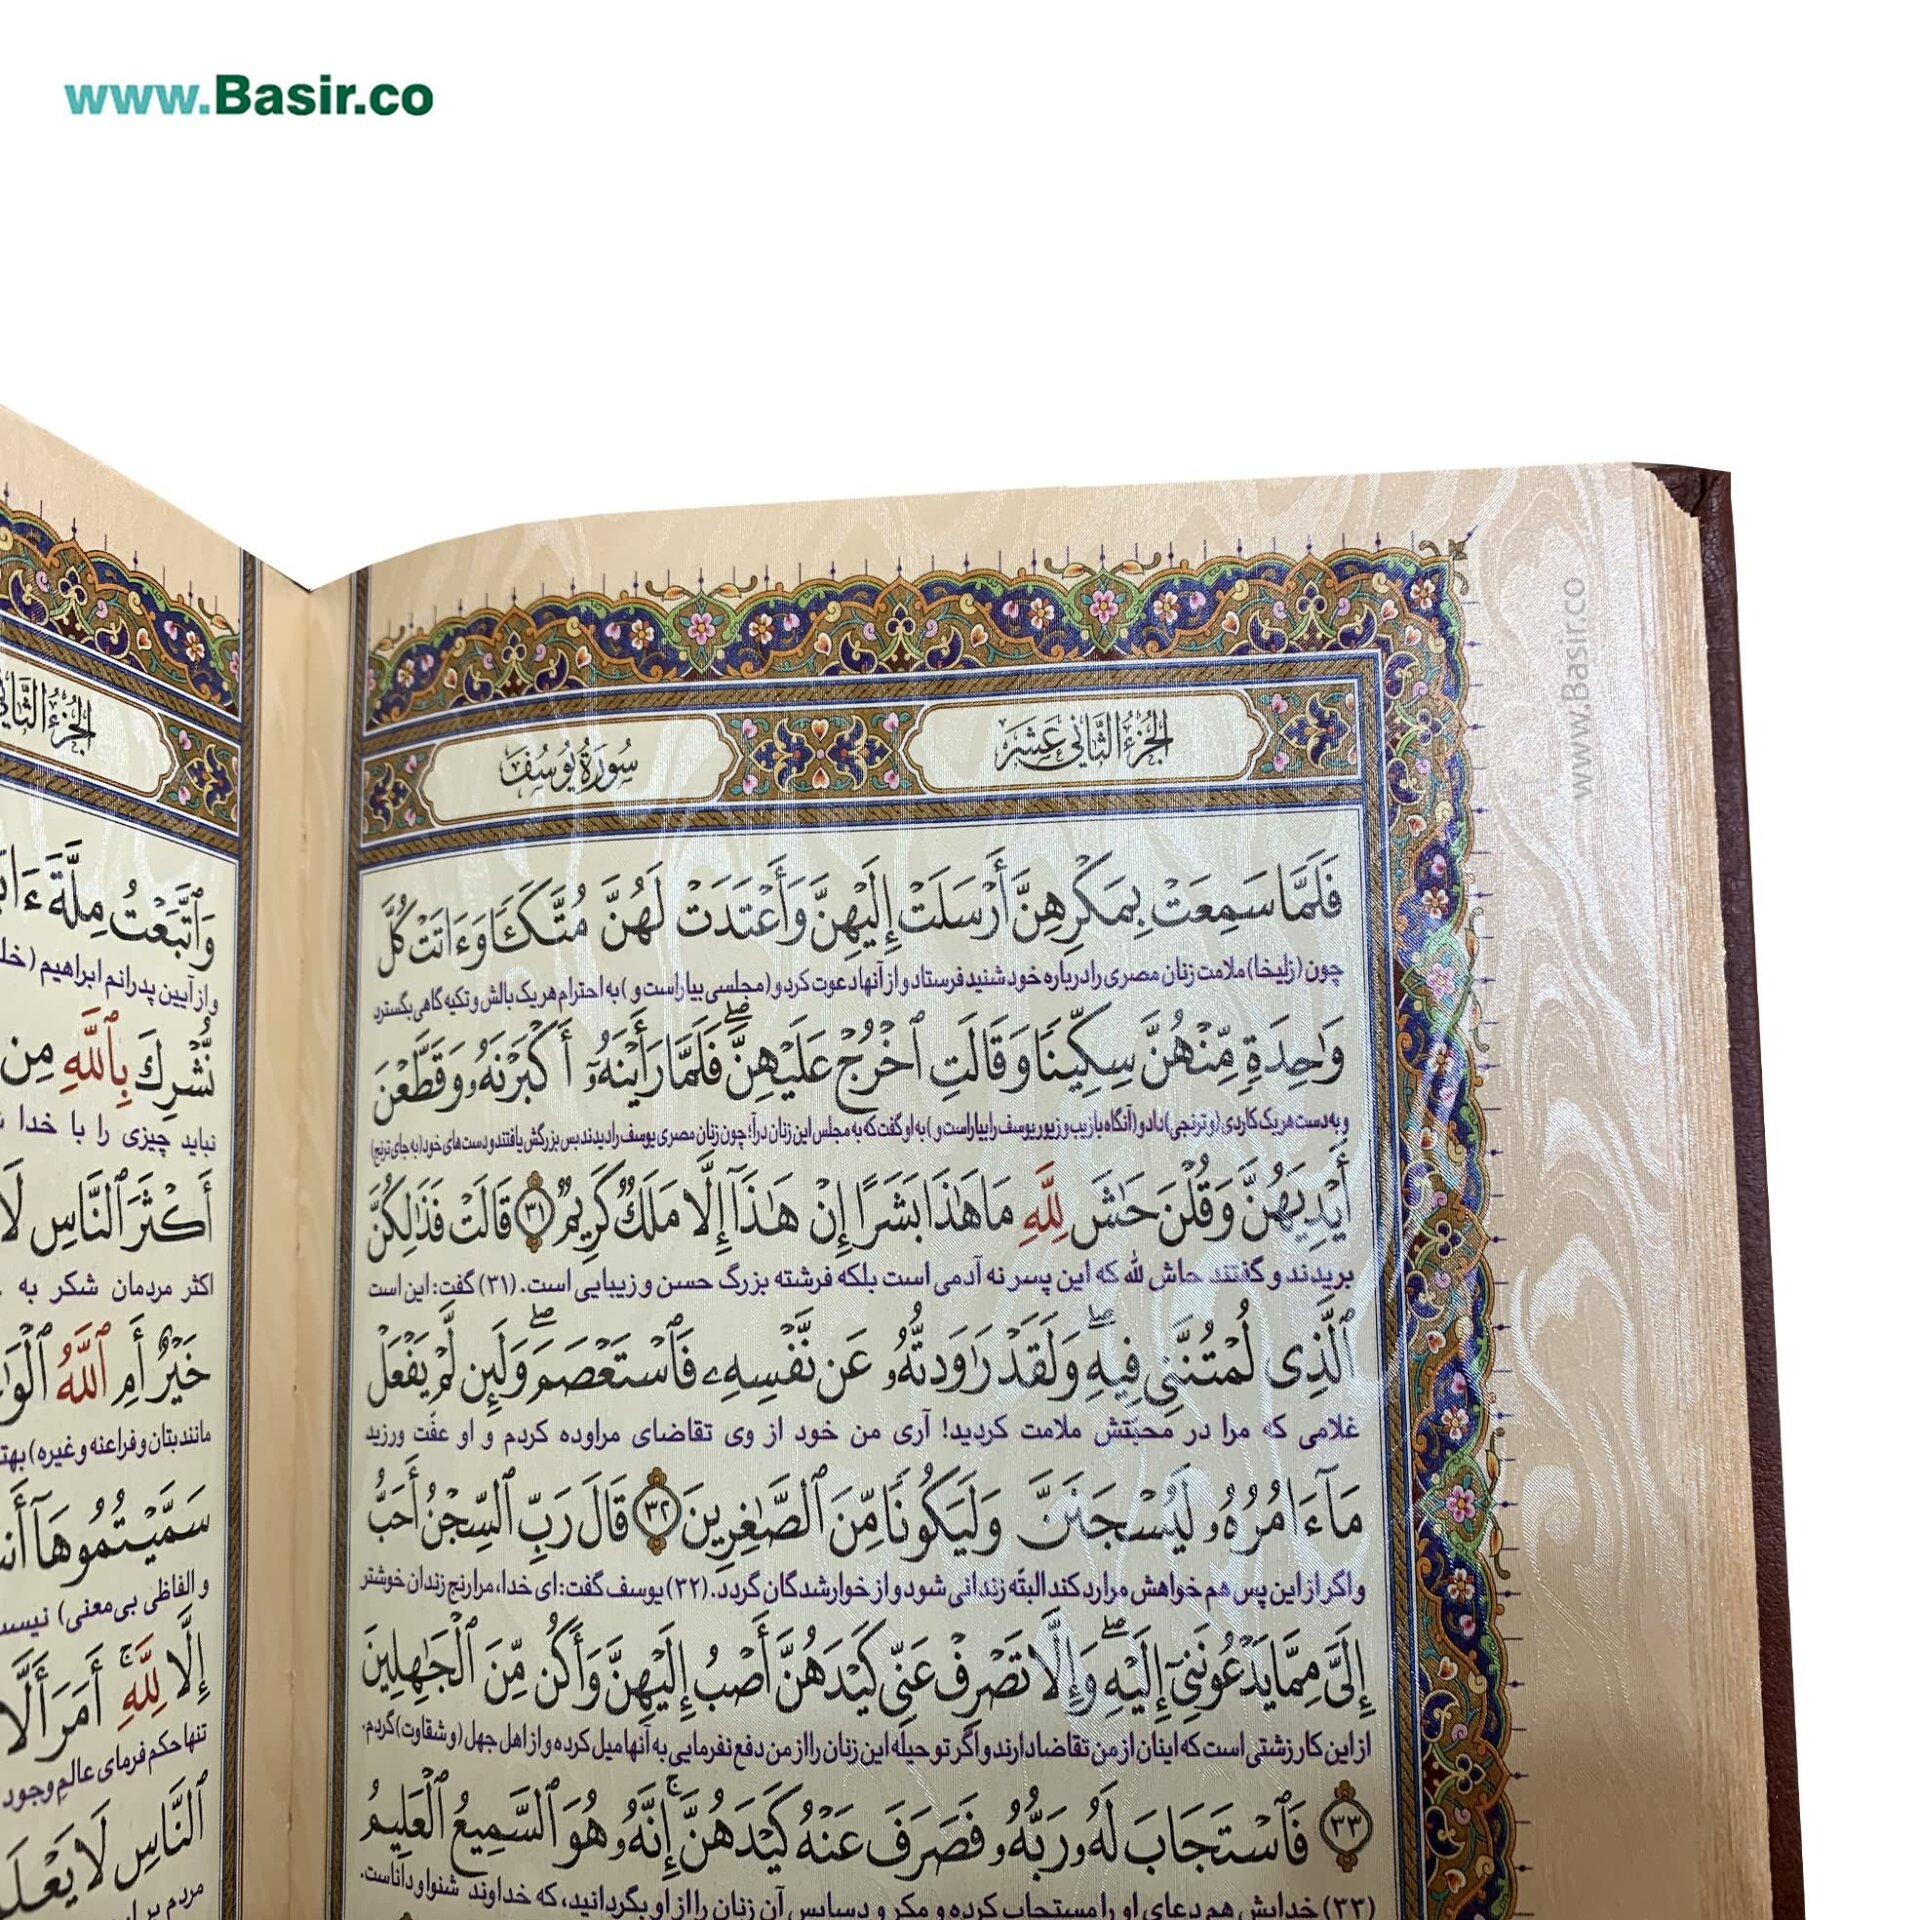 www.Basir.co
الجزء الثانی عشر
سورة یوسف
فَلَمَّا سَمِعَتْ بِمَكْرِهِنَّ أَرْسَلَتْ إِلَيْهِنَّ وَأَعْتَدَتْ لَهُنَّ مُتَّكَـًٔا وَءَاتَتْ كُلَّ
چون (زلیخا) ملامت زنان مصری را درباره خود شنید فرستاد و از آنها دعوت کرد و (مجلسی بیاراست و) به احترام هر یک بالش و تکیه گاهی بگسترد
وَٰحِدَةٍ مِّنْهُنَّ سِكِّينًا وَقَالَتِ ٱخْرُجْ عَلَيْهِنَّ ۖ فَلَمَّا رَأَيْنَهُۥٓ أَكْبَرْنَهُۥ وَقَطَّعْنَ
و به دست هر یک کاردی (و ترنجی) داد و (آنگاه با زیب و زیور یوسف را بیاراست و) به او گفت که به مجلس این زنان درآ؛ چون زنان مصری یوسف را دیدند بس بزرگش یافتند و دست‌های خود (به جای ترنج)
أَيْدِيَهُنَّ وَقُلْنَ حَٰشَ لِلَّهِ مَا هَٰذَا بَشَرًا إِنْ هَٰذَآ إِلَّا مَلَكٌ كَرِيمٌ ٣١ قَالَتْ فَذَٰلِكُنَّ
بریدند و گفتند حاش لله که این پسر نه آدمی است بلکه فرشته بزرگ حسن و زیبایی است. (۳۱) گفت: این است
ٱلَّذِى لُمْتُنَّنِى فِيهِ ۖ وَلَقَدْ رَٰوَدتُّهُۥ عَن نَّفْسِهِۦ فَٱسْتَعْصَمَ ۖ وَلَئِن لَّمْ يَفْعَلْ
غلامی که مرا در محبتش ملامت کردید! آری من خود از وی تقاضای مراوده کردم و او عفّت ورزید
مَآ ءَامُرُهُۥ لَيُسْجَنَنَّ وَلَيَكُونًا مِّنَ ٱلصَّٰغِرِينَ ٣٢ قَالَ رَبِّ ٱلسِّجْنُ أَحَبُّ
و اگر از این پس هم خواهش مرا رد کند البتّه زندانی شود و از خوارشدگان گردد. (۳۲) یوسف گفت: ای خدا، مرا رنج زندان خوشتر
إِلَىَّ مِمَّا يَدْعُونَنِىٓ إِلَيْهِ ۖ وَإِلَّا تَصْرِفْ عَنِّى كَيْدَهُنَّ أَصْبُ إِلَيْهِنَّ وَأَكُن مِّنَ ٱلْجَٰهِلِينَ
از این کار زشتی است که اینان از من تقاضا دارند و اگر تو حیله این زنان را از من دفع نفرمایی به آنها میل کرده و از اهل جهل (و شقاوت) گردم.
٣٣ فَٱسْتَجَابَ لَهُۥ رَبُّهُۥ فَصَرَفَ عَنْهُ كَيْدَهُنَّ ۚ إِنَّهُۥ هُوَ ٱلسَّمِيعُ ٱلْعَلِيمُ
(۳۳) خدایش هم دعای او را مستجاب کرده و مکر و دسایس آن زنان را از او بگردانید، که خداوند شنوا و داناست.
www.Basir.co
الجزء الثانی
وَٱتَّبَعْتُ مِلَّةَ
و از آیین پدرانم ابراهیم
نُّشْرِكَ بِٱللَّهِ مِن
نباید چیزی را با خدا
أَكْثَرَ ٱلنَّاسِ لَا
اکثر مردمان شکر به
خَيْرٌ أَمِ ٱللَّهُ
مانند بتان و فراعنه و غیره)
سَمَّيْتُمُوهَآ
و الفاظی بی‌معنی)
إِلَّا لِلَّهِ ۚ أَمَرَ أَلَّا
تنها حکم فرمای عالم وجود
ٱلنَّاسِ لَا
مردم بر